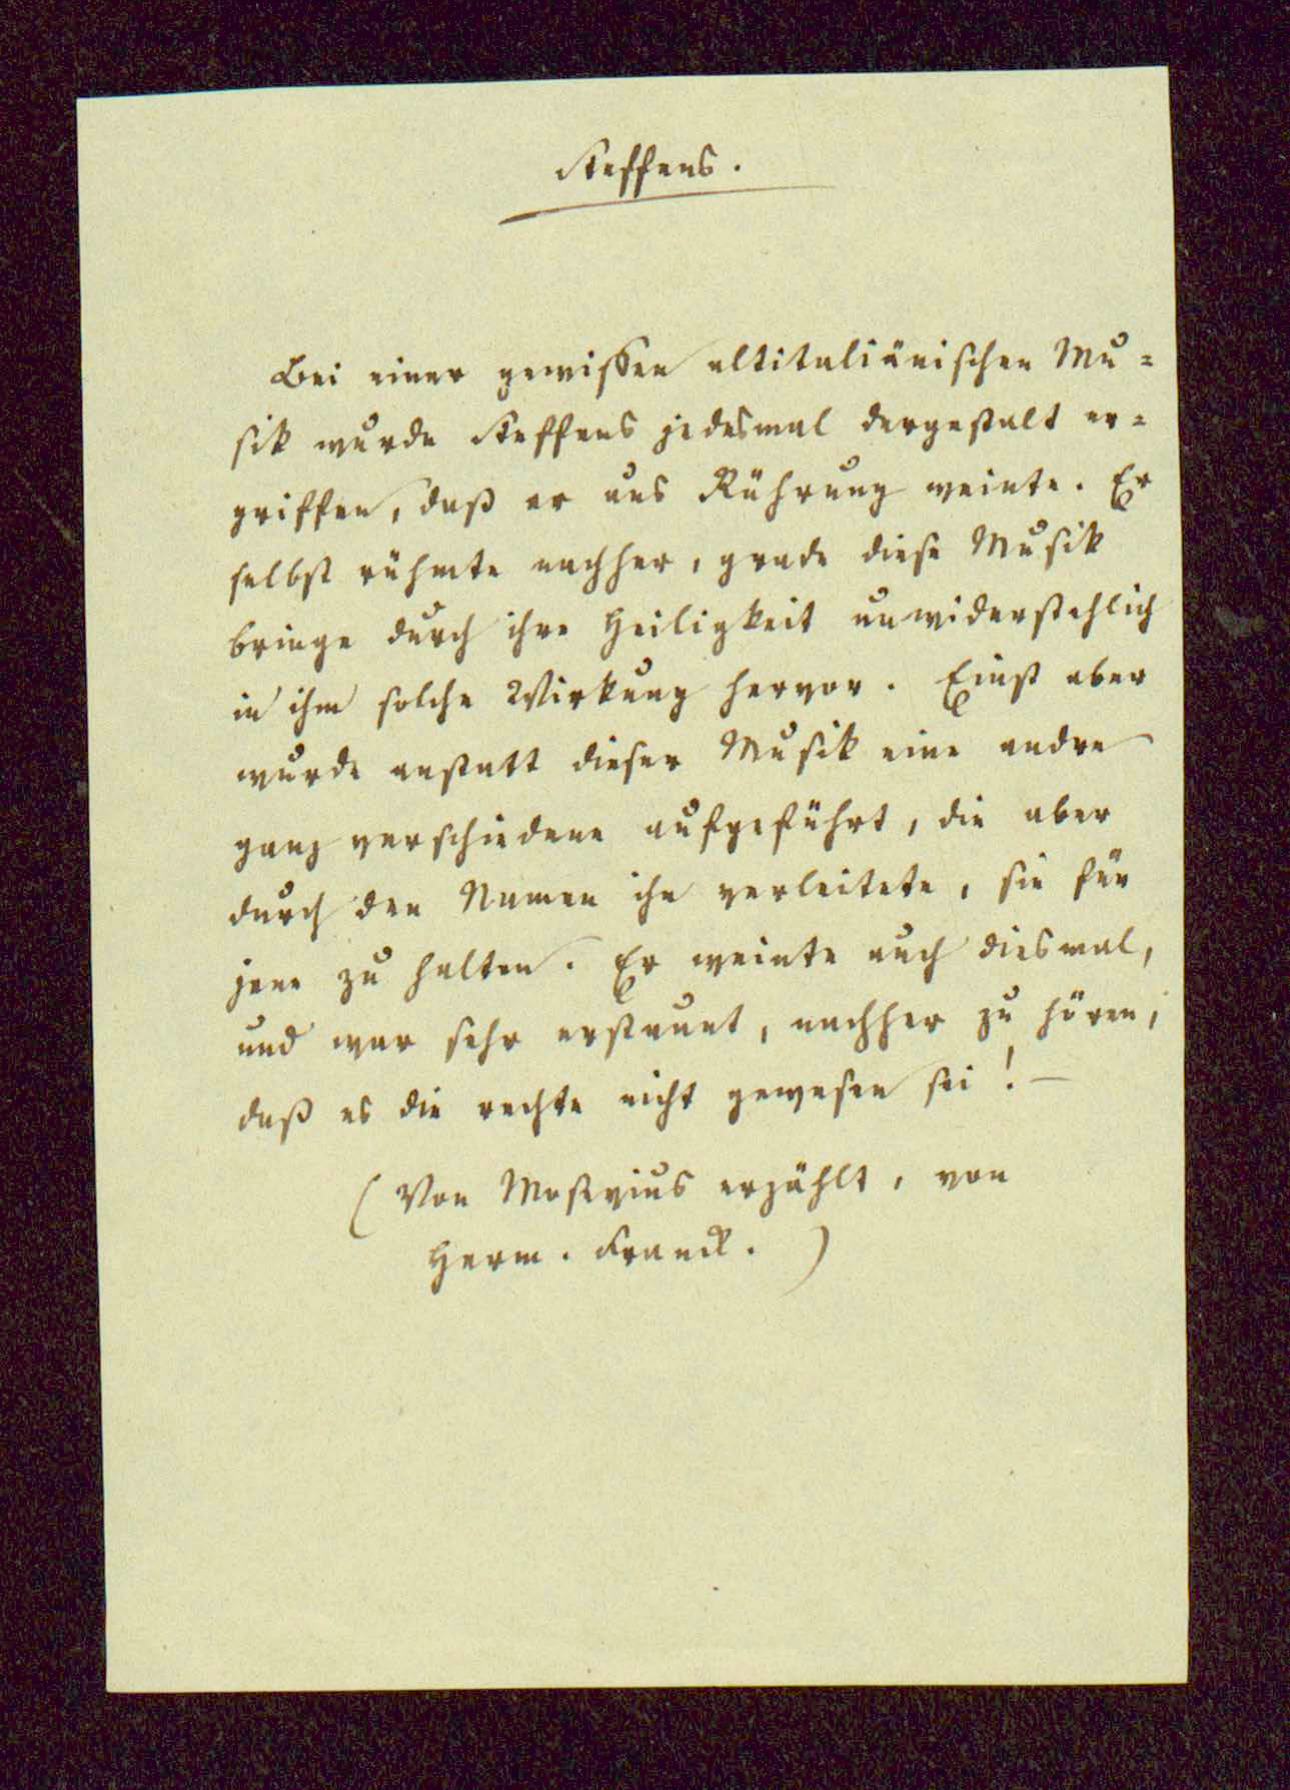 Steffens.
Bei einer gewissen altitaliänischen Mu=
sik wurde Steffens jedesmal dergestalt er=
griffen, daß er aus Rührung weinte. Er
selbst rühmte nachher, grade diese Musik
bringe durch ihre Heiligkeit unwiderstehlich
in ihm solche Wirkung hervor. Einst aber
wurde anstatt dieser Musik eine andre
ganz verschiedene aufgeführt, die aber
durch den Namen ihn verleitete, sie für
jene zu halten. Er weinte auch diesmal,
und war sehr erstaunt, nachher zu hören,
daß es die rechte nicht gewesen sei! —
(Von Mosevius erzählt, von
Herm. Franck.)